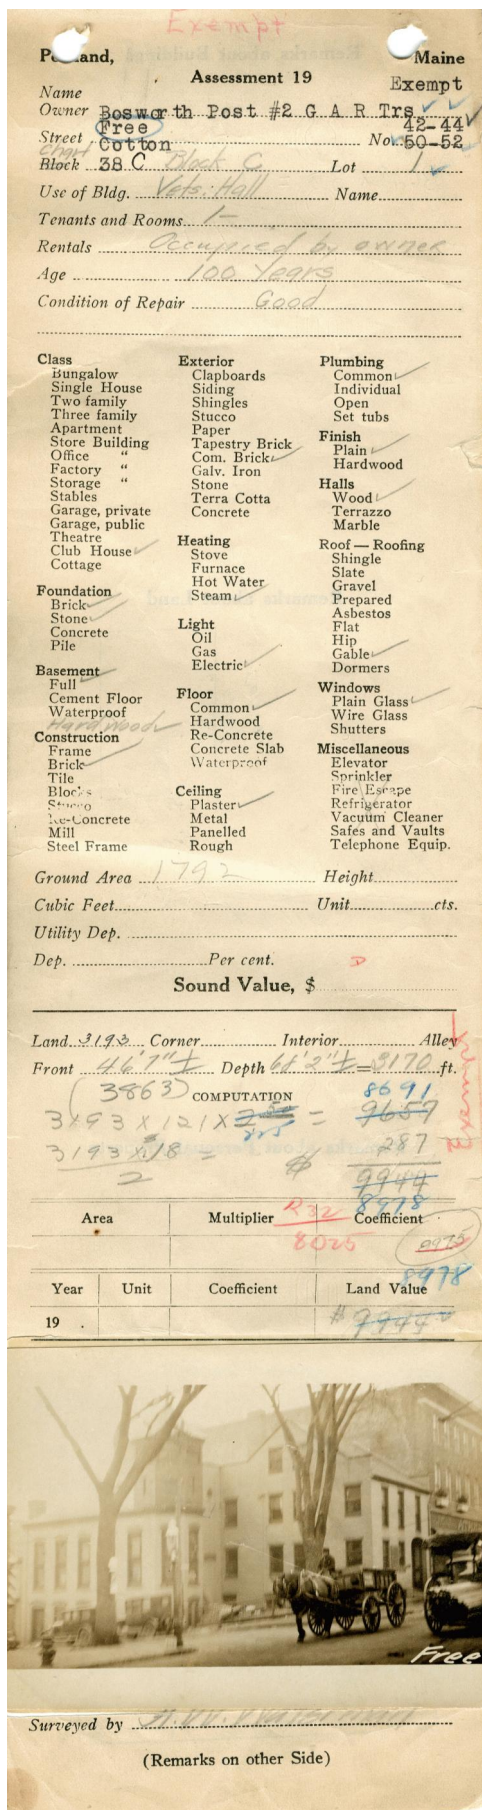 Exempt
Portland, Maine
Assessment 19
Exempt
Name
Owner Bosworth Post #2 G A R Trs
Free 42-44
Street Cotton No. 50-52
Chart
Block 38 C Block C Lot 1
Use of Bldg. Vets. Hall Name
Tenants and Rooms 1-
Rentals Occupied by owner
Age 100 Years
Condition of Repair Good
Class
Bungalow
Single House
Two family
Three family
Apartment
Store Building
Office "
Factory "
Storage "
Stables
Garage, private
Garage, public
Theatre
Club House ✓
Cottage
Foundation
Brick ✓
Stone ✓
Concrete
Pile
Basement
Full ✓
Cement Floor
Waterproof
Hardwood ✓
Construction
Frame
Brick ✓
Tile
Blocks
Stucco
Re-Concrete
Mill
Steel Frame
Exterior
Clapboards
Siding
Shingles
Stucco
Paper
Tapestry Brick
Com. Brick ✓
Galv. Iron
Stone
Terra Cotta
Concrete
Heating
Stove
Furnace
Hot Water
Steam ✓
Light
Oil
Gas
Electric ✓
Floor
Common ✓
Hardwood
Re-Concrete
Concrete Slab
Waterproof
Ceiling
Plaster ✓
Metal
Panelled
Rough
Plumbing
Common ✓
Individual
Open
Set tubs
Finish
Plain ✓
Hardwood
Halls
Wood ✓
Terrazzo
Marble
Roof — Roofing
Shingle
Slate
Gravel
Prepared
Asbestos
Flat
Hip
Gable ✓
Dormers
Windows
Plain Glass ✓
Wire Glass
Shutters
Miscellaneous
Elevator
Sprinkler
Fire Escape
Refrigerator
Vacuum Cleaner
Safes and Vaults
Telephone Equip.
Ground Area 1792 Height
Cubic Feet Unit cts.
Utility Dep.
Dep. Per cent. D
Sound Value, $
Land 3193 Corner Interior Alley
Front 46'7"± Depth 68'2"± = 3170 ft.
Exempt
(3863) COMPUTATION 8691
3193 x 121 x 225 = 9657
3193 x 18 = 287
2 $ 9944
8978
Area Multiplier Coefficient
R32
8025 8975
8978
Year Unit Coefficient Land Value
19 . $ 9944
Free
Surveyed by
(Remarks on other Side)